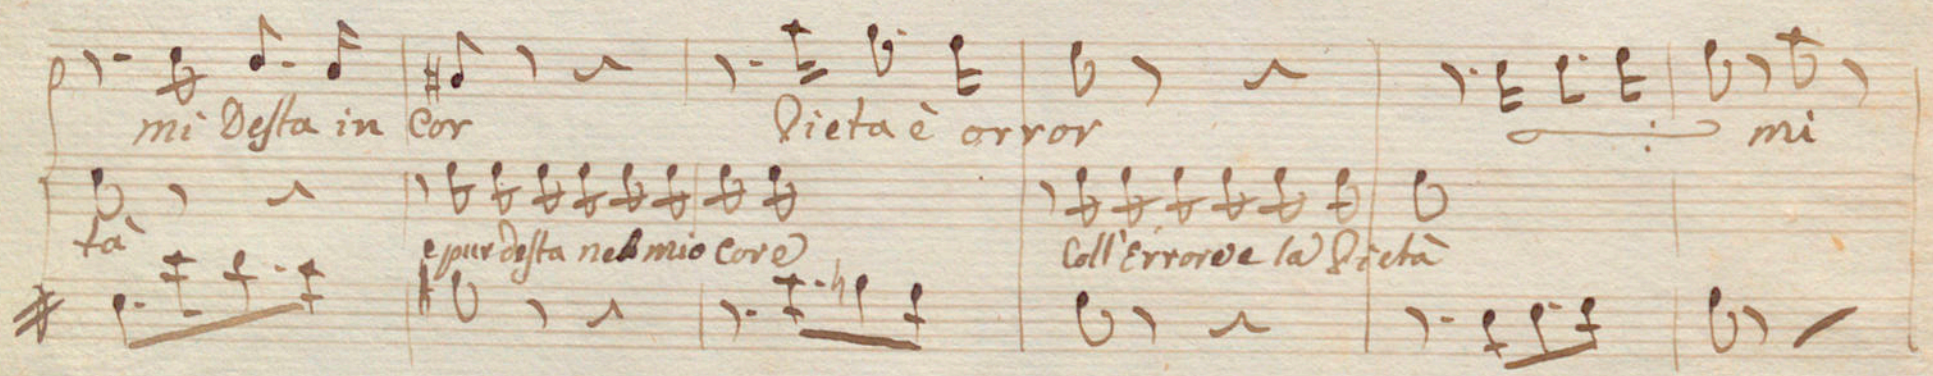 mi Desta in Cor Pieta è orror mi
tà e pur desta nel mio core Coll' Errore e la Pietà